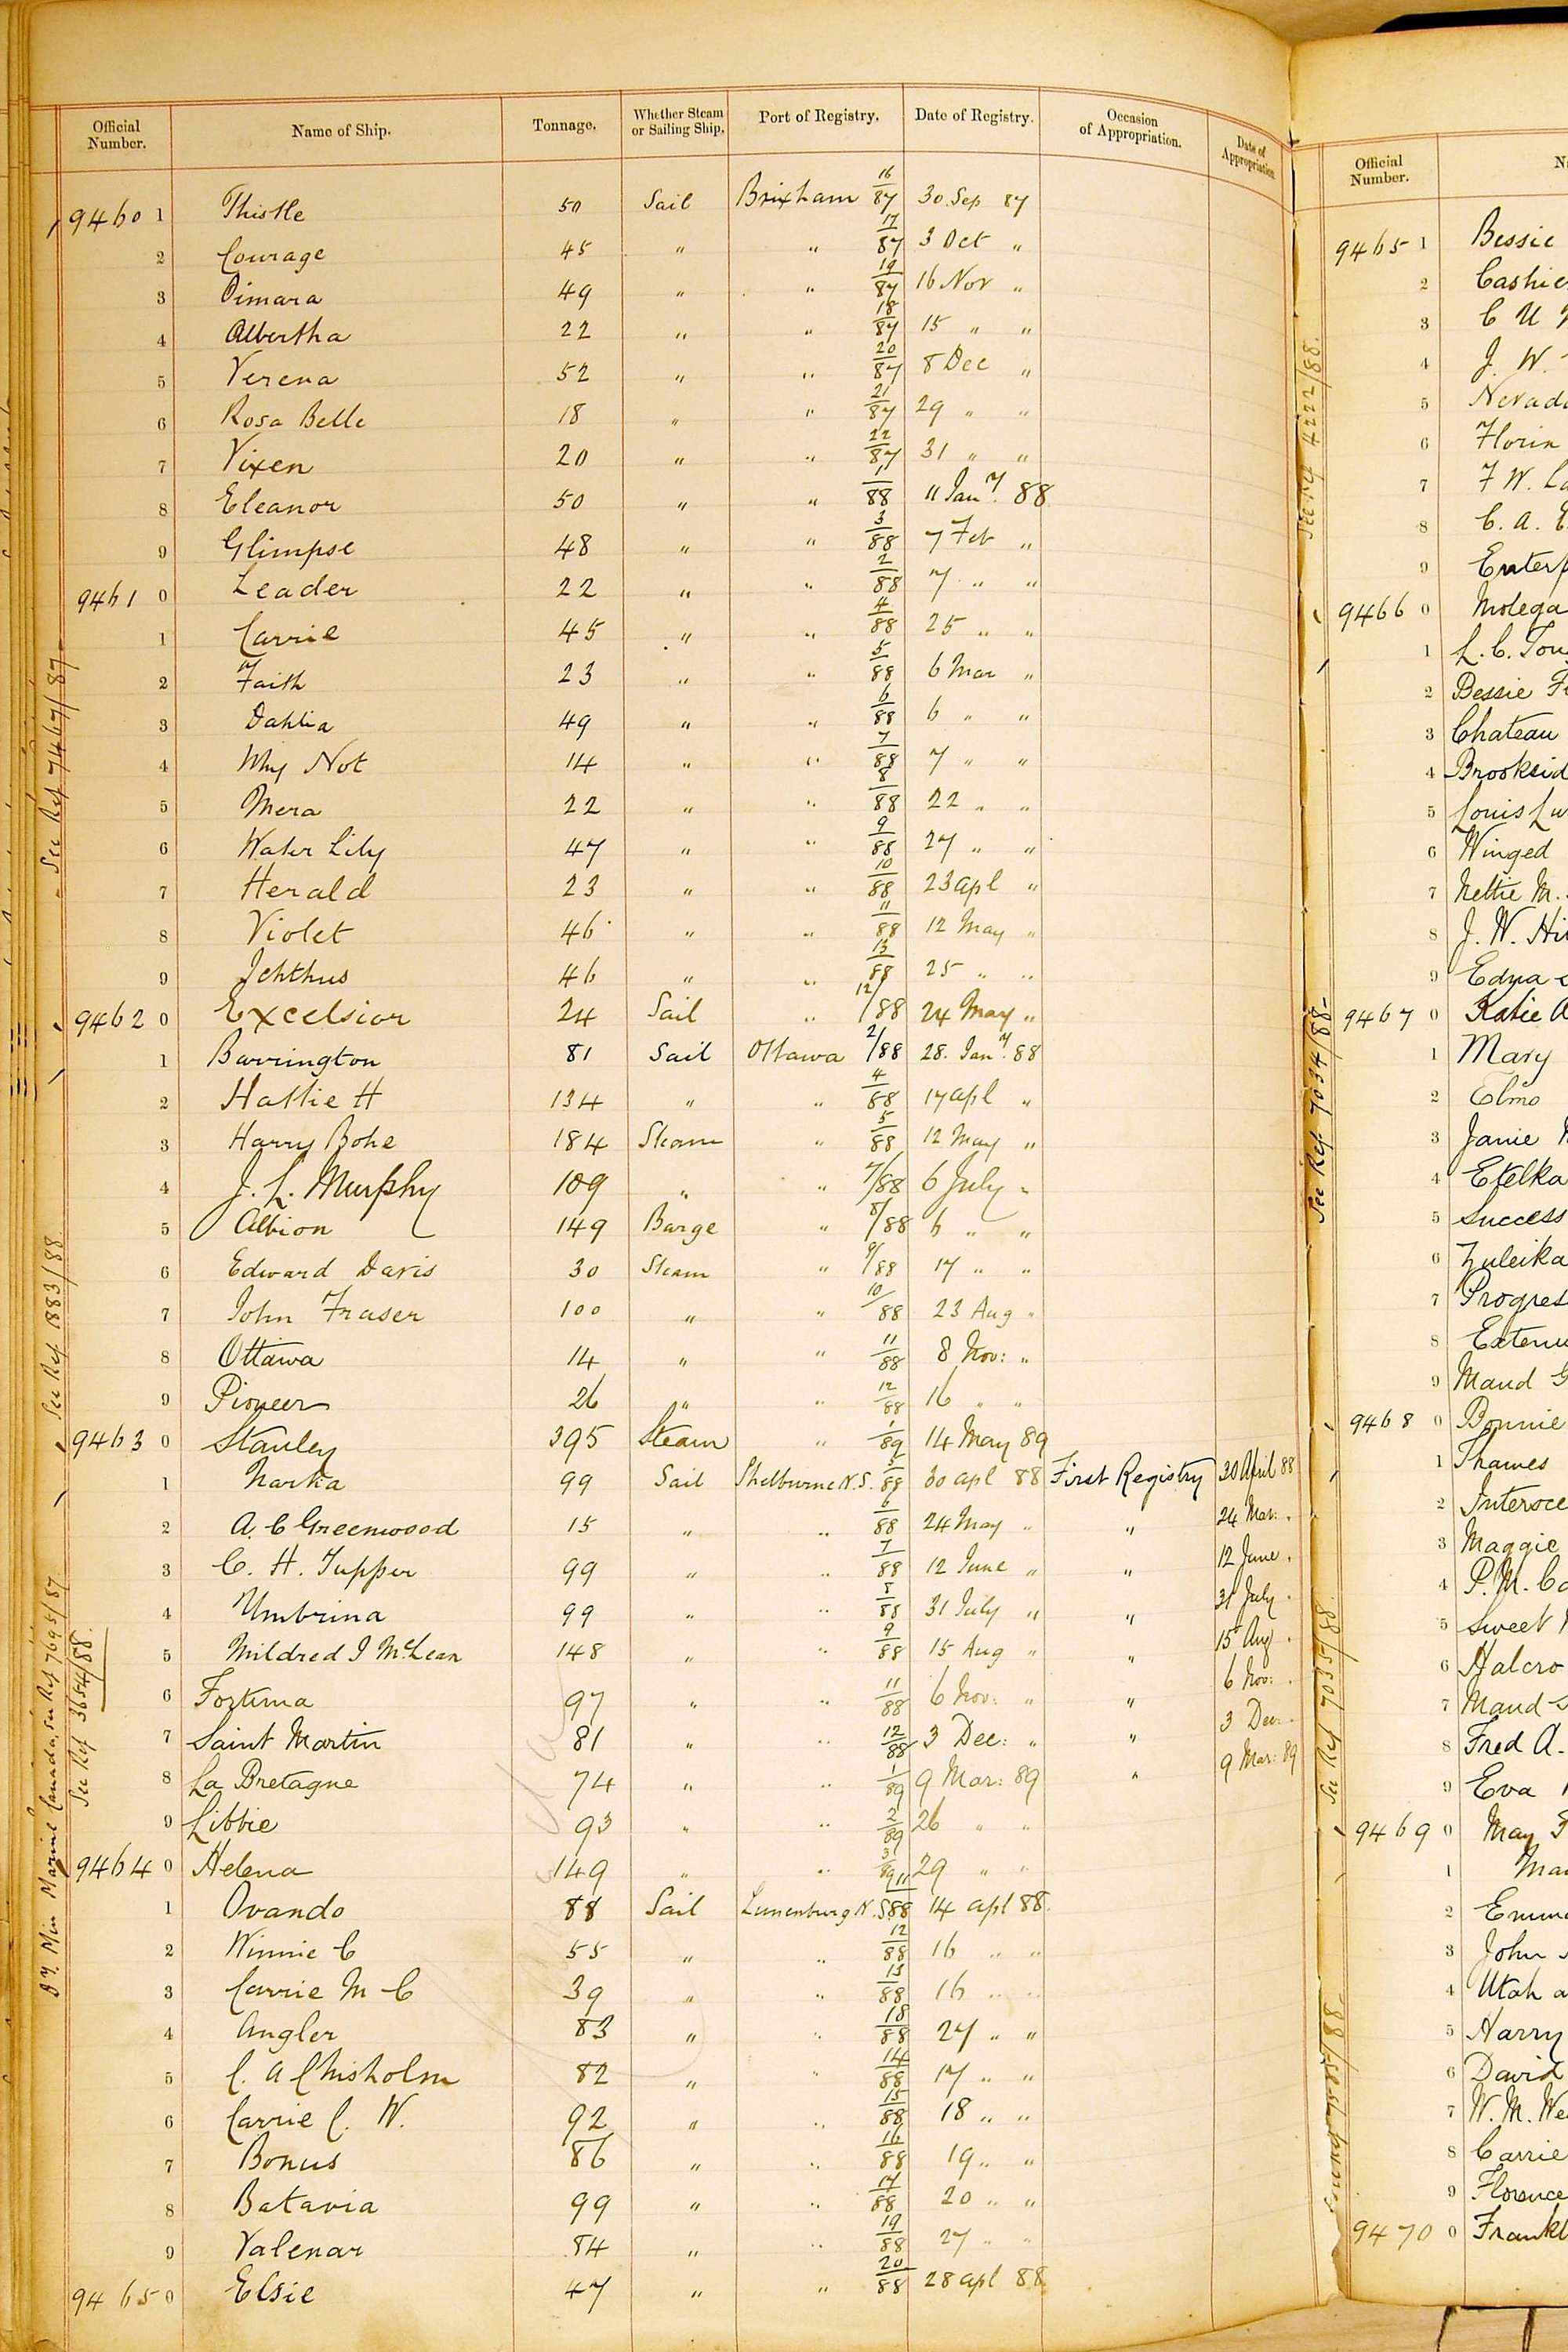 Official Number. Name of Ship. Tonnage. Whether Steam or Sailing Ship. Port of Registry. Date of Registry. Occasion of Appropriation. Date of Appropriation
9460 1 Thistle 50 Sail Brixham 16/87 30 Sep 87
2 Courage 45 " " 17/87 3 Oct "
3 Dimara 49 " " 19/87 16 Nov "
4 Albertha 22 " " 18/87 15 " "
5 Verena 52 " " 20/87 8 Dec "
6 Rosa Belle 18 " " 21/87 29 " "
7 Vixen 20 " " 22/87 31 " "
8 Eleanor 50 " " 1/88 11 Jany. 88
9 Glimpse 48 " " 3/88 7 Feb "
9461 0 Leader 22 " " 2/88 7 " "
1 Carrie 45 " " 4/88 25 " "
2 Faith 23 " " 5/88 6 Mar "
3 Dahlia 49 " " 6/88 6 " "
4 Why Not 14 " " 7/88 7 " "
5 Mera 22 " " 8/88 22 " "
6 Water Lily 47 " " 9/88 27 " "
7 Herald 23 " " 10/88 23 apl "
8 Violet 46 " " 11/88 12 May "
9 Ichthus 46 " " 13/88 25 " "
9462 0 Excelsior 24 Sail " 12/88 24 May "
1 Barrington 81 Sail Ottawa 2/88 28. Jany. 88
2 Hattie H 134 " " 4/88 17 apl "
3 Harry Bohe 184 Steam " 5/88 12 May "
4 J. L. Murphy 109 " " 7/88 6 July "
5 Albion 149 Barge " 8/88 6 " "
6 Edward Davis 30 Steam " 9/88 17 " "
7 John Fraser 100 " " 10/88 23 Aug "
8 Ottawa 14 " " 11/88 8 Nov: "
9 Pioneer 26 " " 12/88 16 " "
9463 0 Stanley 395 Steam " 1/89 14 May 89
1 Narka 99 Sail Shelburne N.S. 5/88 30 apl 88 First Registry 30 April 88
2 A. C Greenwood 15 " " 6/88 24 May " " 24 Mar: "
3 C. H. Tupper 99 " " 7/88 12 June " " 12 June "
4 Umbrina 99 " " 8/88 31 July " " 31 July "
5 Mildred I McLean 148 " " 9/88 15 Aug " " 15 Aug "
6 Fortuna 97 " " 11/88 6 Nov: " " 6 Nov: "
7 Saint Martin 81 " " 12/88 3 Dec: " " 3 Dec: "
8 La Bretagne 74 " " 1/89 9 Mar: 89 " 9 Mar: 89
9 Libbie 93 " " 2/89 26 " "
9464 0 Helena 149 " " 3/89 29 " "
1 Ovando 88 Sail Lunenburg N.S. 11/88 14 apl 88.
2 Winnie C 55 " " 12/88 16 " "
3 Carrie M C 39 " " 13/88 16 " "
4 Angler 83 " " 18/88 27 " "
5 C. A Chisholm 82 " " 14/88 17 " "
6 Carrie C. W. 92 " " 15/88 18 " "
7 Bonus 86 " " 16/88 19 " "
8 Batavia 99 " " 17/88 20 " "
9 Valenar 84 " " 19/88 27 " "
9465 0 Elsie 47 " " 20/88 28 apl 88
See Ref 7467/87
See Ref 1883/88
Min Marine Canada, see Ref 7695/87
See Ref 3654/88.
Official Number.
9465 1 Bessie
2
3 C U
4 J. W.
5
6 Florin
7 F W.
8 C. A.
9
9466 0 Molega
1 L. C.
2 Bessie
3 Chateau
4
5 Louis
6 Winged
7 Nettie M.
8 J. W.
9 Edna
9467 0 Katie
1 Mary
2 Elmo
3 Janie
4 Etelka
5 Success
6 Zuleika
7
8
9 Maud
9468 0 Bonnie
1 Thames
2
3 Maggie
4 P. M.
5 Sweet
6 Halcro
7 Maud
8 Fred A.
9 Eva
9469 0 May
1
2
3 John
4 Utah
5 Harry
6 David
7 W. M.
8 Carrie
9 Florence
9470 0
See Ref 4222/88.
See Ref 7034/88
See Ref 7035/88